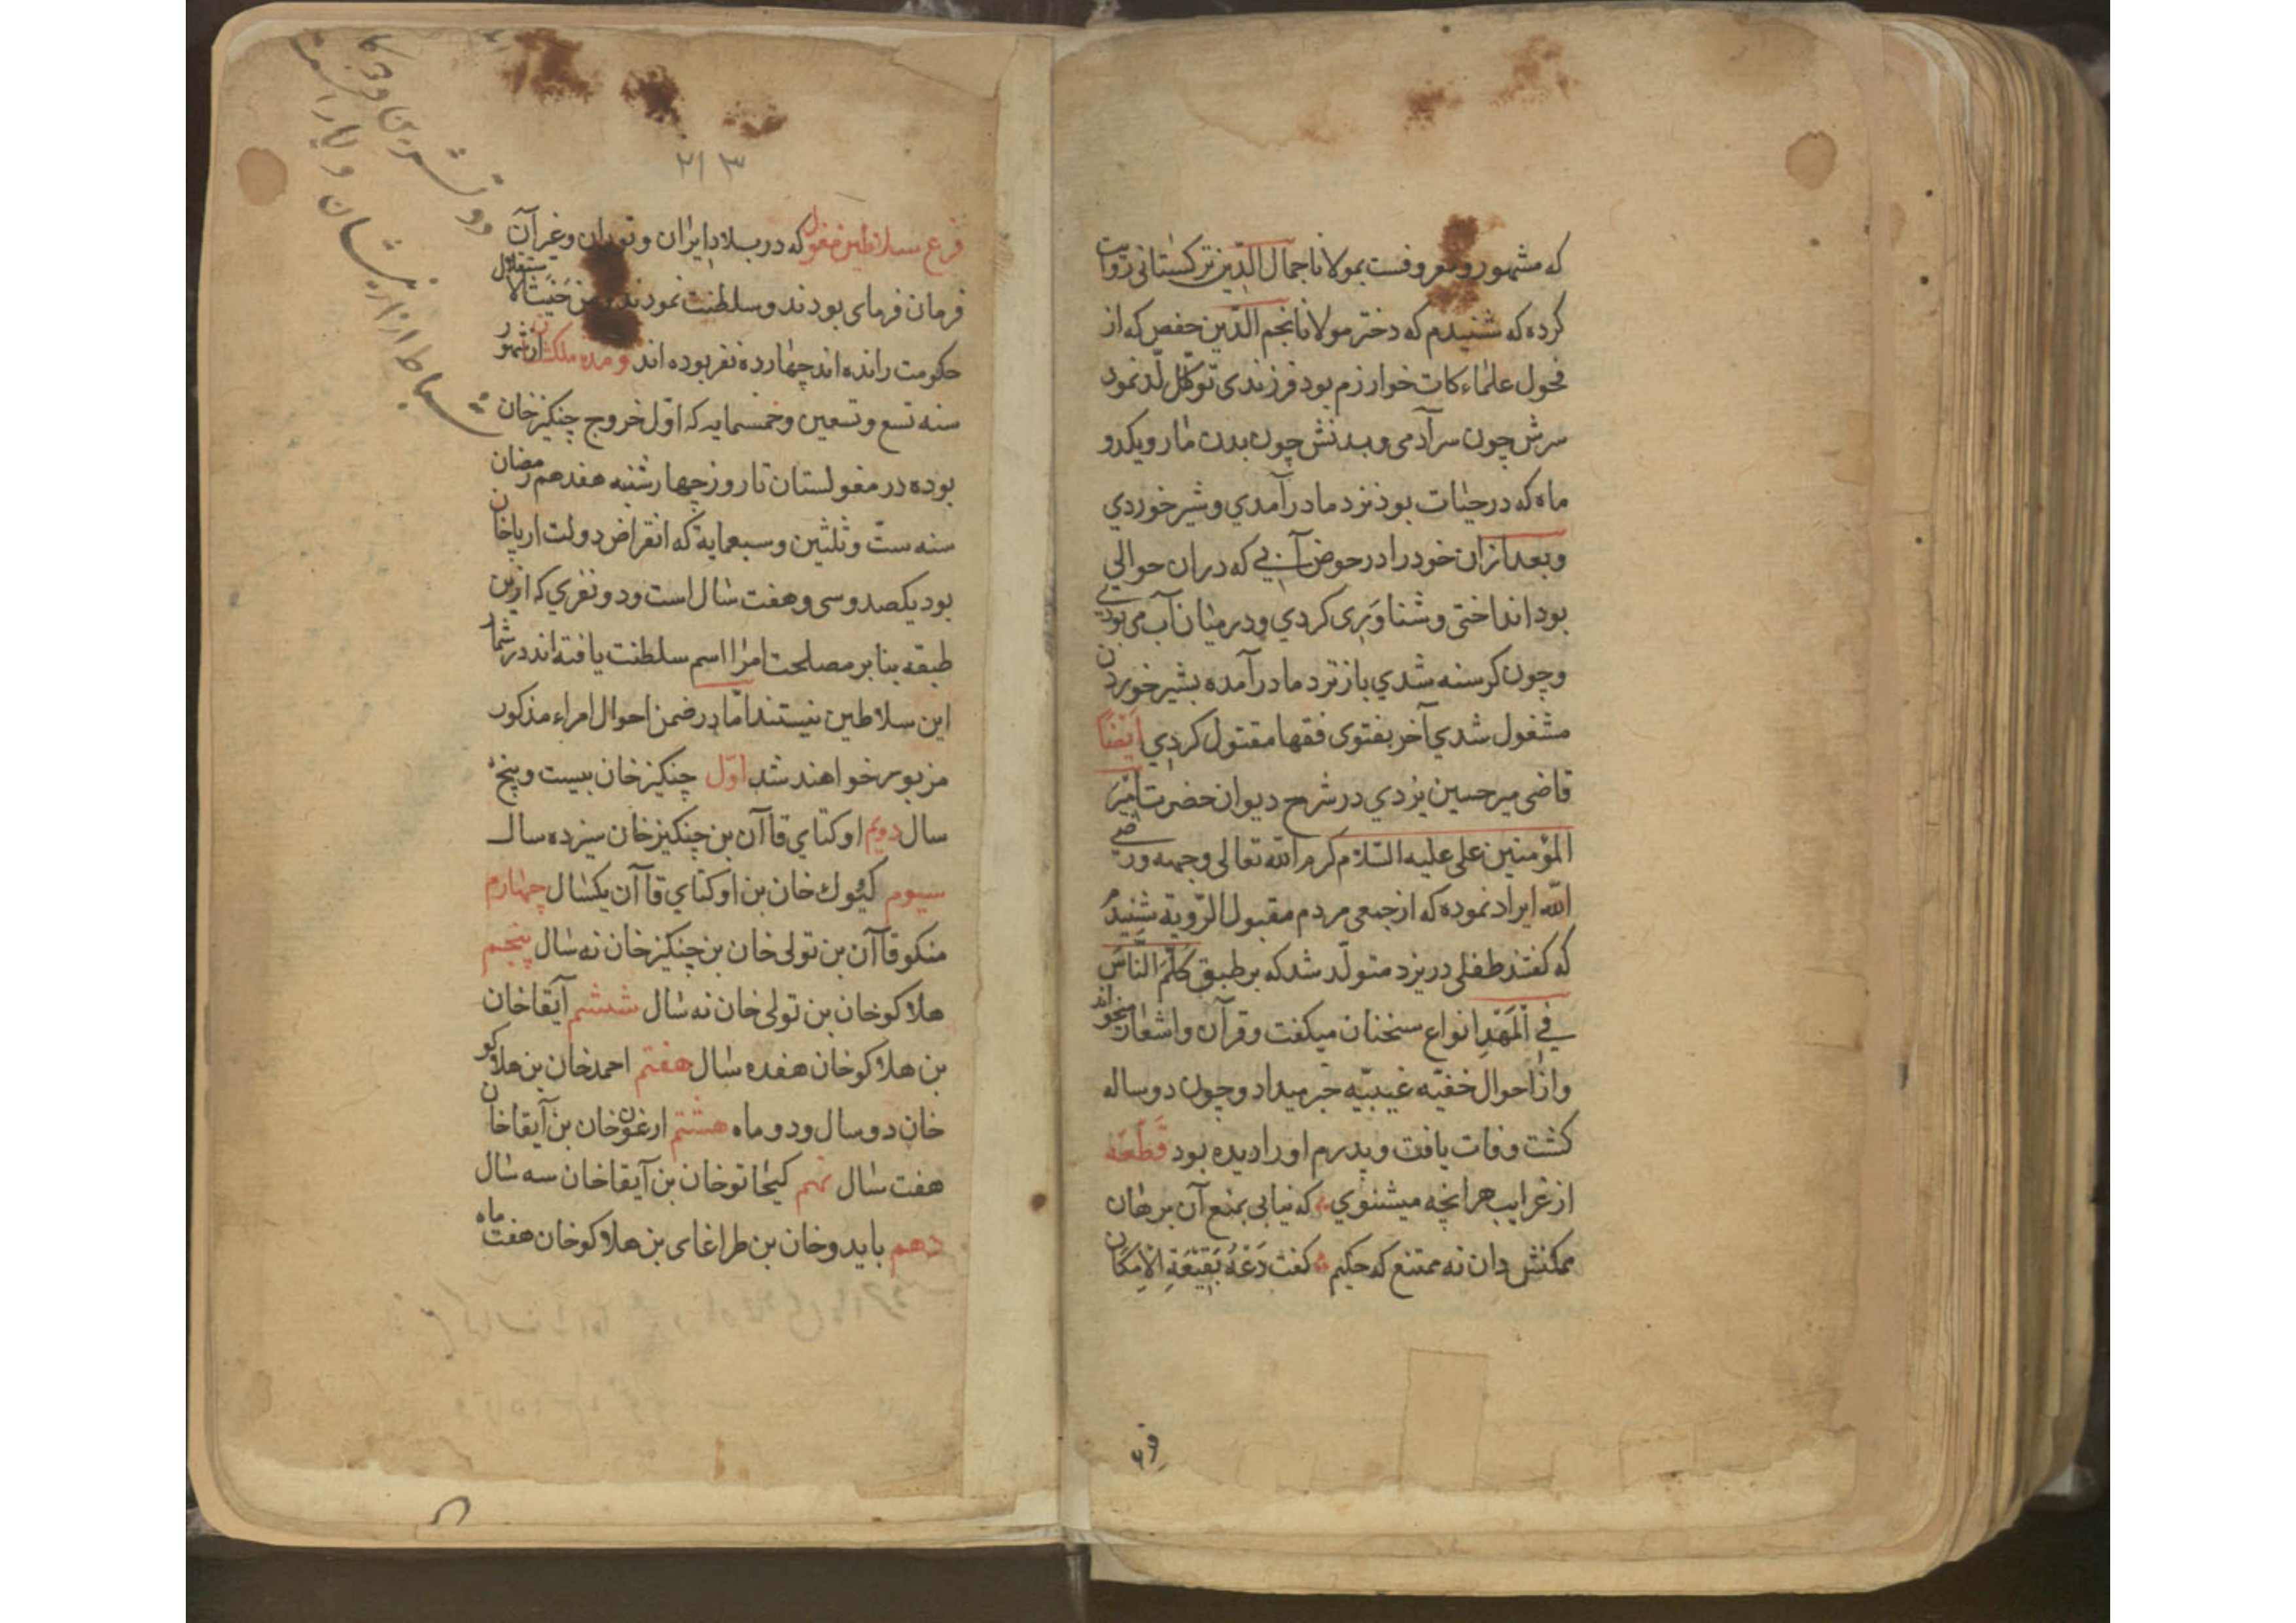 که مشهور و معروفست بمولانا جمال الدین ترکستانی روایت
کرده که شنیدم که دختر مولانا نجم الدین حفص که از
فحول علماء کات خوارزم بود فرزندی تولّد نمود
سرش چون سر آدمی و بدنش چون بدن مار و یکدو
ماه که در حیات بود نزد مادر آمدي و شیر خوردي
و بعد ازان خود را در حوض آبي که دران حوالي
بود انداختی و شناوری کردي و در میان آب می بودي
و چون کرسنه شدي باز نزد مادر آمده بشیر خوردن
مشغول شدي آخر بفتوی فقها مقتول کردید ایضا
قاضی میر حسین یزدي در شرح دیوان حضرت امیر
المؤمنین علی علیه السلام کرم الله تعالی وجهه و رضی
الله ایراد نموده که از جمعی مردم مقبول الروایة شنیدم
که کفتند طفلی در یزد متولّد شد که بر طبق کلّم النّاس
في المهد انواع سخنان میکفت و قرآن و اشعار میخواند
و از احوال خفیّه غیبیّه خبر میداد و چون دو ساله
کشت وفات یافت و پدرم او را دیده بود قطعه
از غرایب هرانچه میشنوي که نیابی بمنع آن برهان
ممکنش دان نه ممتنع که حکیم کفت ذره بقعة الامکان
۲۱۳
فرع سلاطین مغول که در بلاد ایران و توران و غیر آن
فرمان فرمای بودند و سلطنت نمودند و من حیث الاستقلال
حکومت رانده اند چهارده نفر بوده اند و مدة ملکشان از شهور
سنه تسع و تسعین و خمسمایه که اوّل خروج چنکیز خان
بوده در مغولستان تا روز چهارشنبه هفدهم رمضان
سنه ستّ و ثلثین و سبعمایة که انقراض دولت ارپاخان
بود یکصد و سی و هفت سال است و دو نفري که ازین
طبقه بنابر مصلحت امرا اسم سلطنت یافته اند در شمار
این سلاطین نیستند امّا در ضمن احوال امراء مذکور
مزبور خواهند شد اوّل چنکیز خان بیست و پنج
سال دویم اوکتاي قاآن بن چنکیز خان سیزده سال
سیوم کیوك خان بن اوکتاي قاآن یکسال چهارم
منکو قاآن بن تولی خان بن چنکیز خان نه سال پنجم
هلاکو خان بن تولی خان نه سال ششم آبقا خان
بن هلاکو خان هفده سال هفتم احمد خان بن هلاکو
خان دو سال و دو ماه هشتم ارغون خان بن آبقا خان
هفت سال نهم کیخاتو خان بن آبقا خان سه سال
دهم بایدو خان بن طراغای بن هلاکو خان هفت ماه